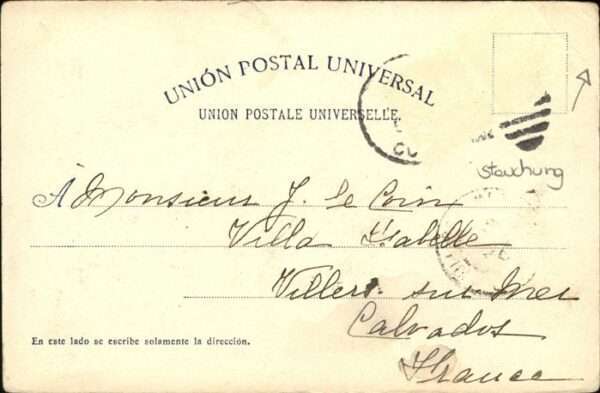 UNIÓN POSTAL UNIVERSAL
UNION POSTALE UNIVERSELLE.
Stauchung
A Monsieur J. Le Coin
Villa Isabelle
Villers sur Mer
Calvados
France
En este lado se escribe solamente la dirección.